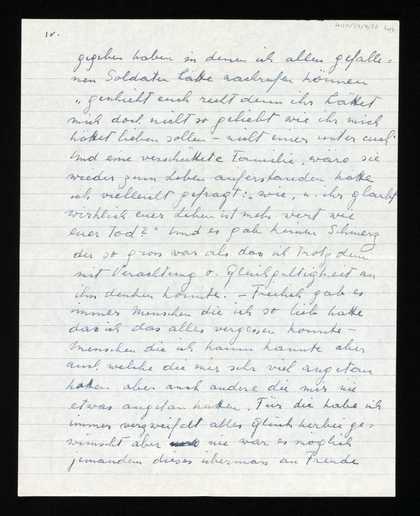 10.
gegeben haben in denen ich allen gefalle=
nen Soldaten hätte nachrufen können
"geschieht euch recht denn ihr hättet
mich doch nicht so geliebt wie ihr mich
hättet lieben sollen – nicht einer unter euch"
Und eine verschüttete Familie, wäre sie
wieder zum Leben auferstanden hätte
ich vielleicht gefragt: "wie, u. ihr glaubt
wirklich euer Leben ist mehr wert wie
euer Tod?" Und es gab keinen Schmerz
der so gross war als dass ich trotzdem
mit Verachtung o. Gleichgültigkeit an
ihn denken konnte. – Freilich gab es
immer Menschen die ich so lieb hatte
dass ich das alles vergessen konnte –
Menschen die ich kaum kannte aber
auch welche die mir sehr viel angetan
hatten aber auch andere die mir nie
etwas angetan hatten. Für die habe ich
immer verzweifelt alles Glück herbei ge=
wünscht aber nie war es möglich
jemandem dieses übermass an Freude